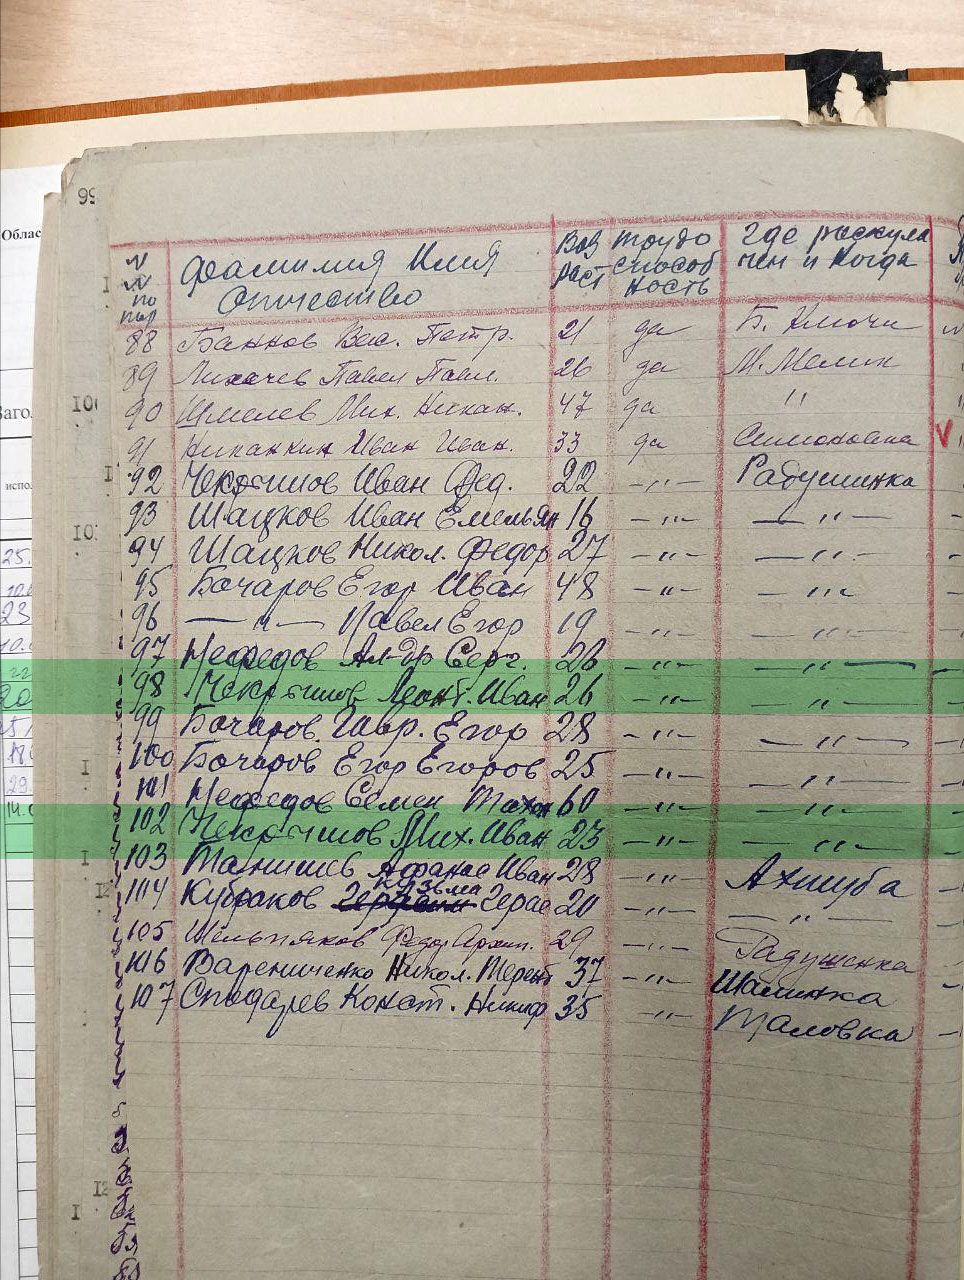 99
Облас
№ № по пор
Фамилия Имя Отчество
Воз раст
трудо способ ность
Где раскула чен и когда
88 Баннов Вас. Петр. 21 да Б. Ключи
89 Лихачев Павел Павл. 26 да М. Мелик
90 Шмелев Мих. Никан. 47 да "
91 Никанкин Иван Иван. 33 да Симоновка
92 Чекрышов Иван Фед. 22 -"- Радушинка
93 Шацков Иван Емельян 16 -"- -"-
94 Шацков Никол. Федор 27 -"- -"-
95 Бочаров Егор Иван 48 -"- -"-
96 -"- Павел Егор 19 -"- -"-
97 Нефедов Ал-др Серг. 26 -"- -"-
98 Чекрышов Леонт. Иван 26 -"- -"-
99 Бочаров Гавр. Егор 28 -"- -"-
100 Бочаров Егор Егоров 25 -"- -"-
101 Нефедов Семен 60 -"- -"-
102 Чекрышов Мих. Иван 23 -"- -"-
103 Танишев Афанас Иван 28 -"- Ахтуба
104 Кубраков Кузьма Герас 20 -"- -"-
105 Федор Архип. 29 -"- Радушенка
106 Варениченко Никол. Терент 37 -"- Шаминка
107 Сподарев Конст. Никиф 35 -"- Таловка